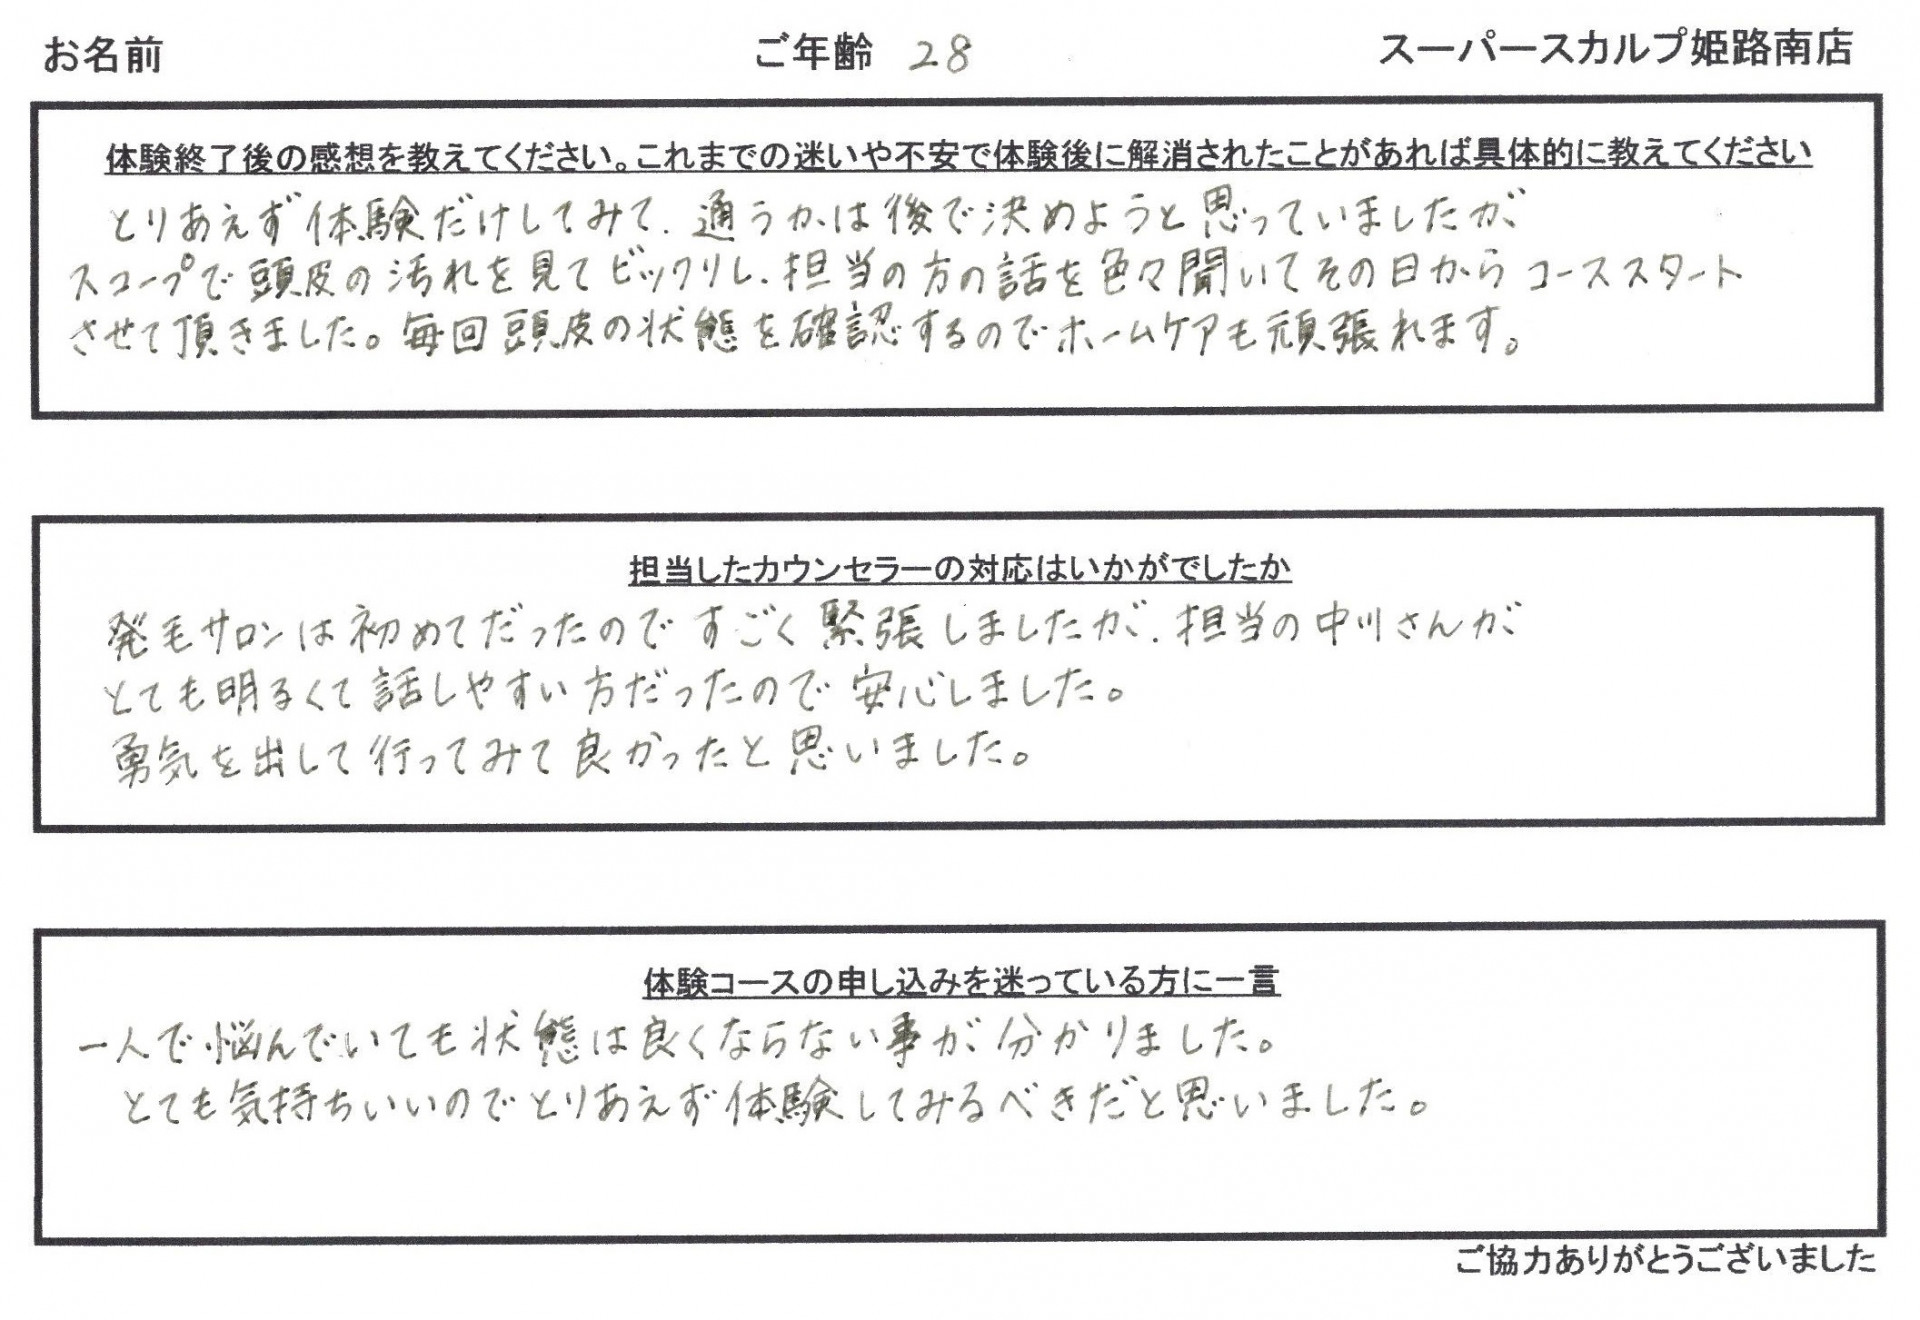 お名前 ご年齢 28 スーパースカルプ姫路南店
体験終了後の感想を教えてください。これまでの迷いや不安で体験後に解消されたことがあれば具体的に教えてください
とりあえず体験だけしてみて、通うかは後で決めようと思っていましたが、
スコープで頭皮の汚れを見てビックリし、担当の方の話を色々聞いてその日からコーススタート
させて頂きました。毎回頭皮の状態を確認するのでホームケアも頑張れます。
担当したカウンセラーの対応はいかがでしたか
発毛サロンは初めてだったのですごく緊張しましたが、担当の中川さんが
とても明るくて話しやすい方だったので安心しました。
勇気を出して行ってみて良かったと思いました。
体験コースの申し込みを迷っている方に一言
一人で悩んでいても状態は良くならない事が分かりました。
とても気持ちいいのでとりあえず体験してみるべきだと思いました。
ご協力ありがとうございました